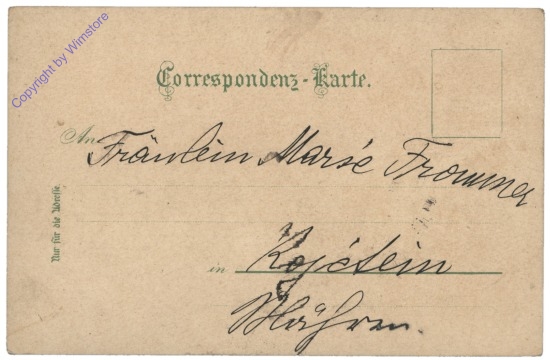 Copyright by Wimstore
Correspondenz-Karte.
An Fräulein Marie Frommer
Nur für die Adresse
in Kojetein
Mähren.